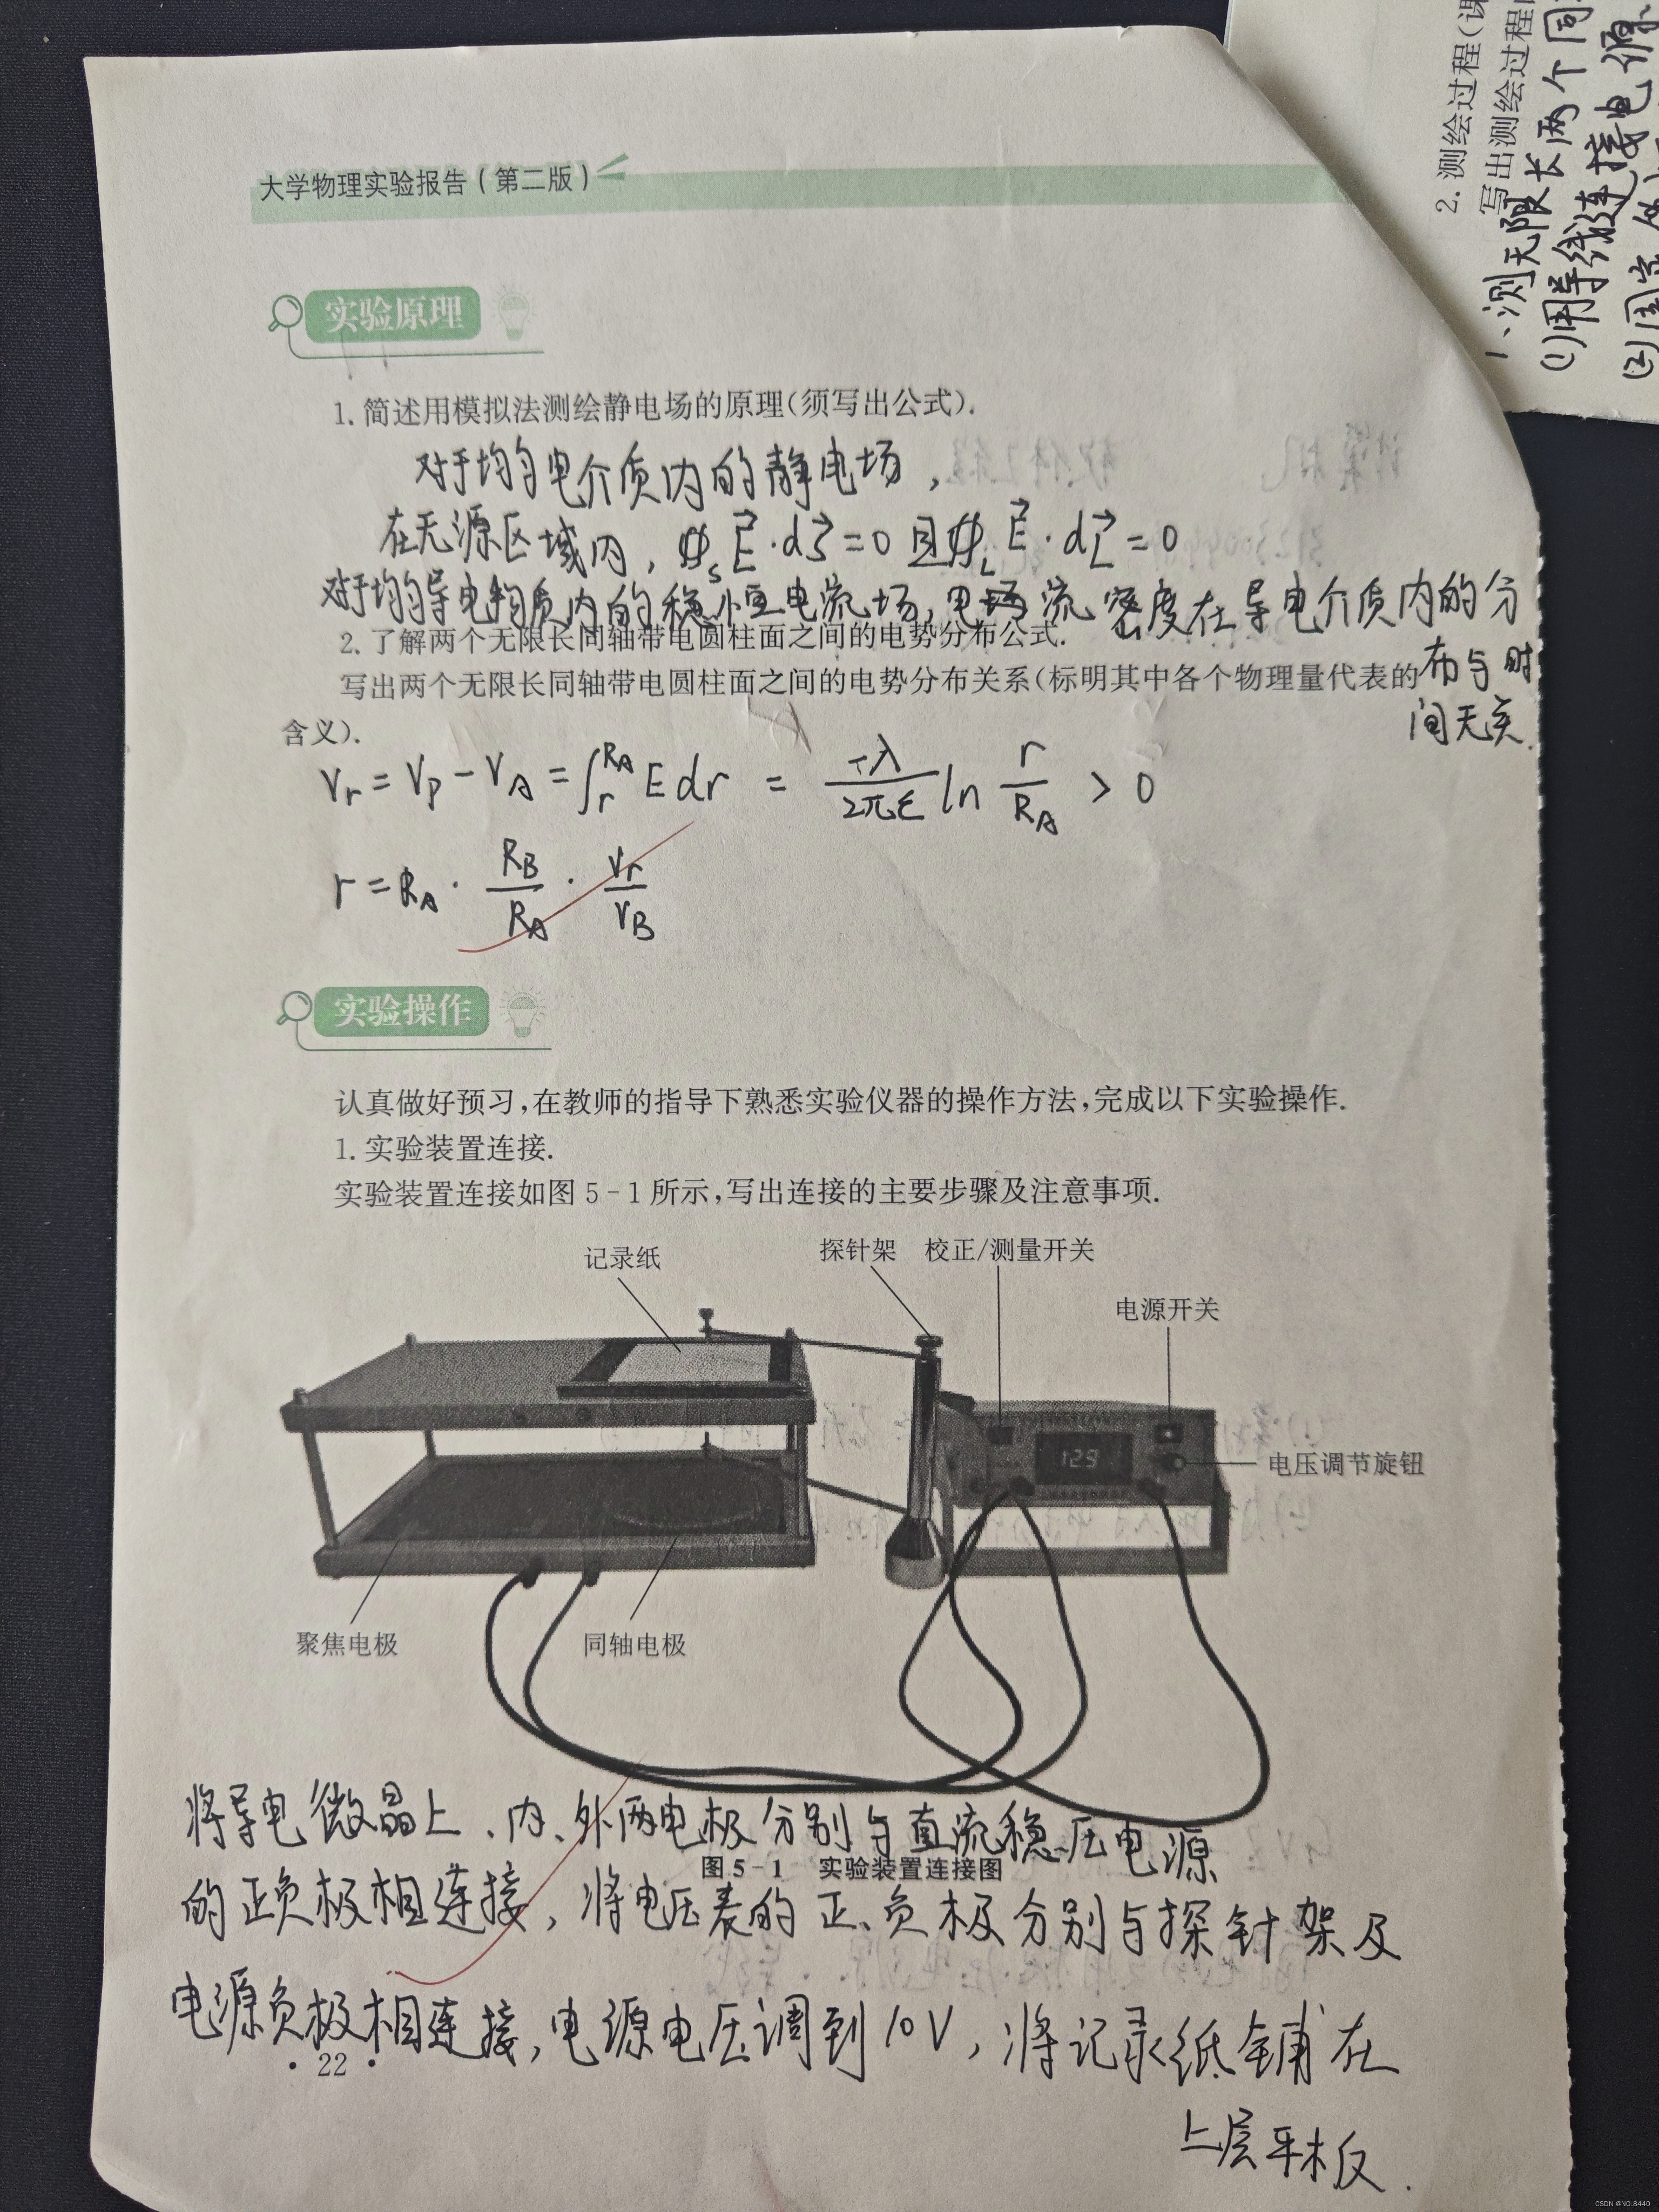 大学物理实验报告(第二版)
实验原理
1. 简述用模拟法测绘静电场的原理(须写出公式).
对于均匀电介质内的静电场,
在无源区域内, ∯s E⃗·dS⃗=0 且∯L E⃗·dL⃗=0
对于均匀导电物质内的稳恒电流场,电场流密度在导电介质内的分
布与时
间无关.
2. 了解两个无限长同轴带电圆柱面之间的电势分布公式.
写出两个无限长同轴带电圆柱面之间的电势分布关系(标明其中各个物理量代表的
含义).
Vr = Vp - VA = ∫r^RA E dr = -λ/2πε ln r/RA > 0
r = RA · RB/RA · Vr/VB
实验操作
认真做好预习,在教师的指导下熟悉实验仪器的操作方法,完成以下实验操作.
1. 实验装置连接.
实验装置连接如图 5-1 所示,写出连接的主要步骤及注意事项.
记录纸
探针架
校正/测量开关
电源开关
129
电压调节旋钮
聚焦电极
同轴电极
将导电微晶上、内、外两电极分别与直流稳压电源
图 5-1 实验装置连接图
的正负极相连接, 将电压表的正、负极分别与探针架及
电源负极相连接,电源电压调到10V, 将记录纸铺在
上层平板.
• 22 •
2. 测绘过程(课
写出测绘过程
1、测无限长两个同
(1)用导线连接电源、
(2)固定
CSDN @NO.8440